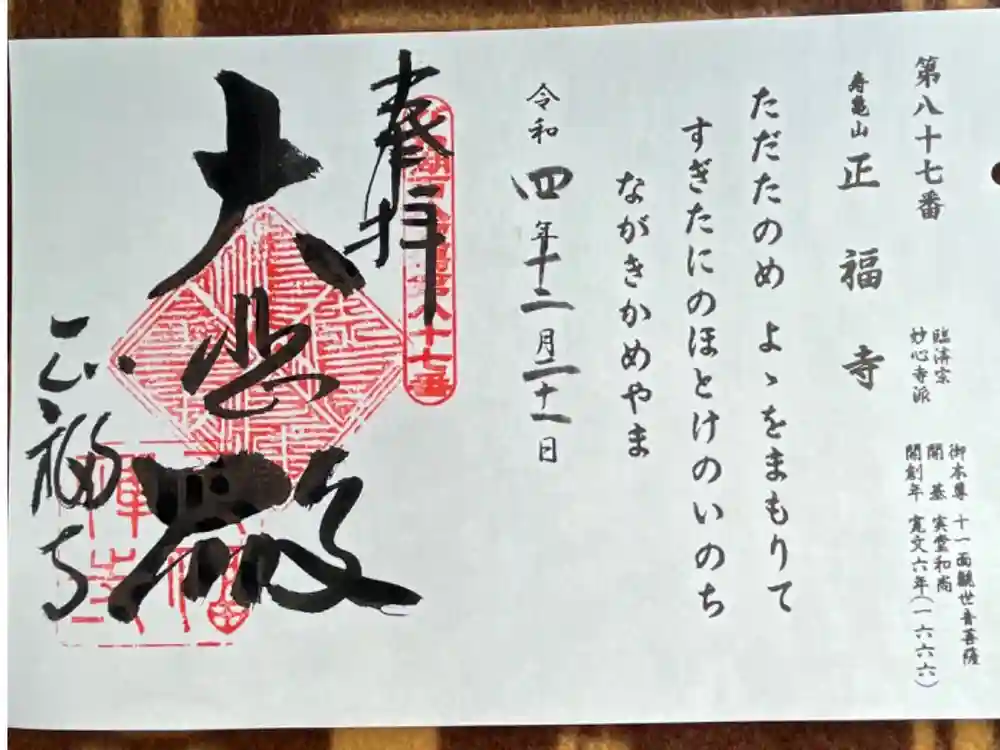 第八十七番
寿亀山 正福寺
臨済宗
妙心寺派
御本尊 十一面観世音菩薩
開基 実堂和尚
開創年 寛文六年(一六六六)
ただたのめ よゝをまもりて
すぎたにのほとけのいのち
ながきかめやま
令和四年十二月二十一日
奉拝
第八十七番
大悲殿
正福寺